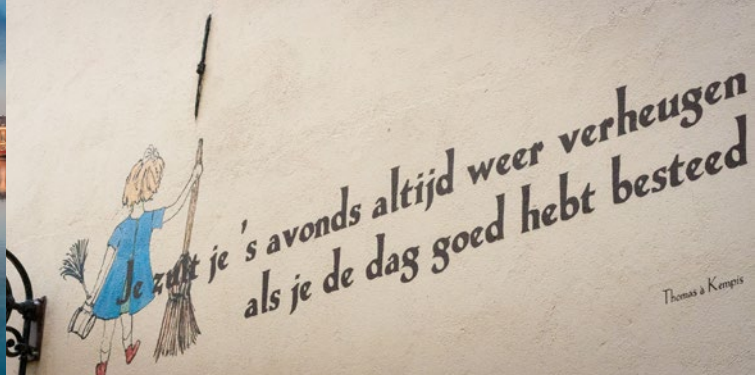 Je zult je 's avonds altijd weer verheugen
als je de dag goed hebt besteed
Thomas à Kempis